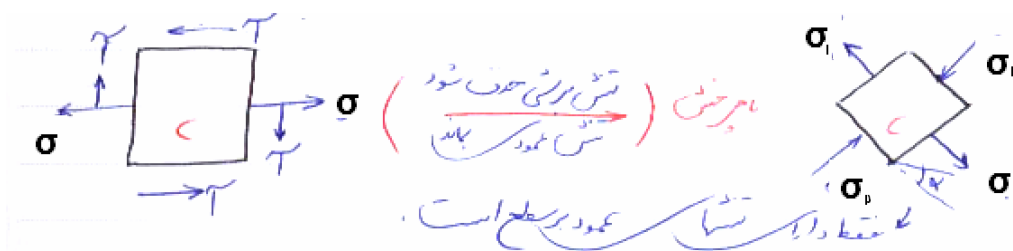 τ τ
σ σ
C
τ τ
( تنش برشی حذف شود
تنش عمودی بماند ) با چرخش
σ₁ σₚ
C
σₚ α σ
فقط دارای تنشهای عمود بر سطح است.